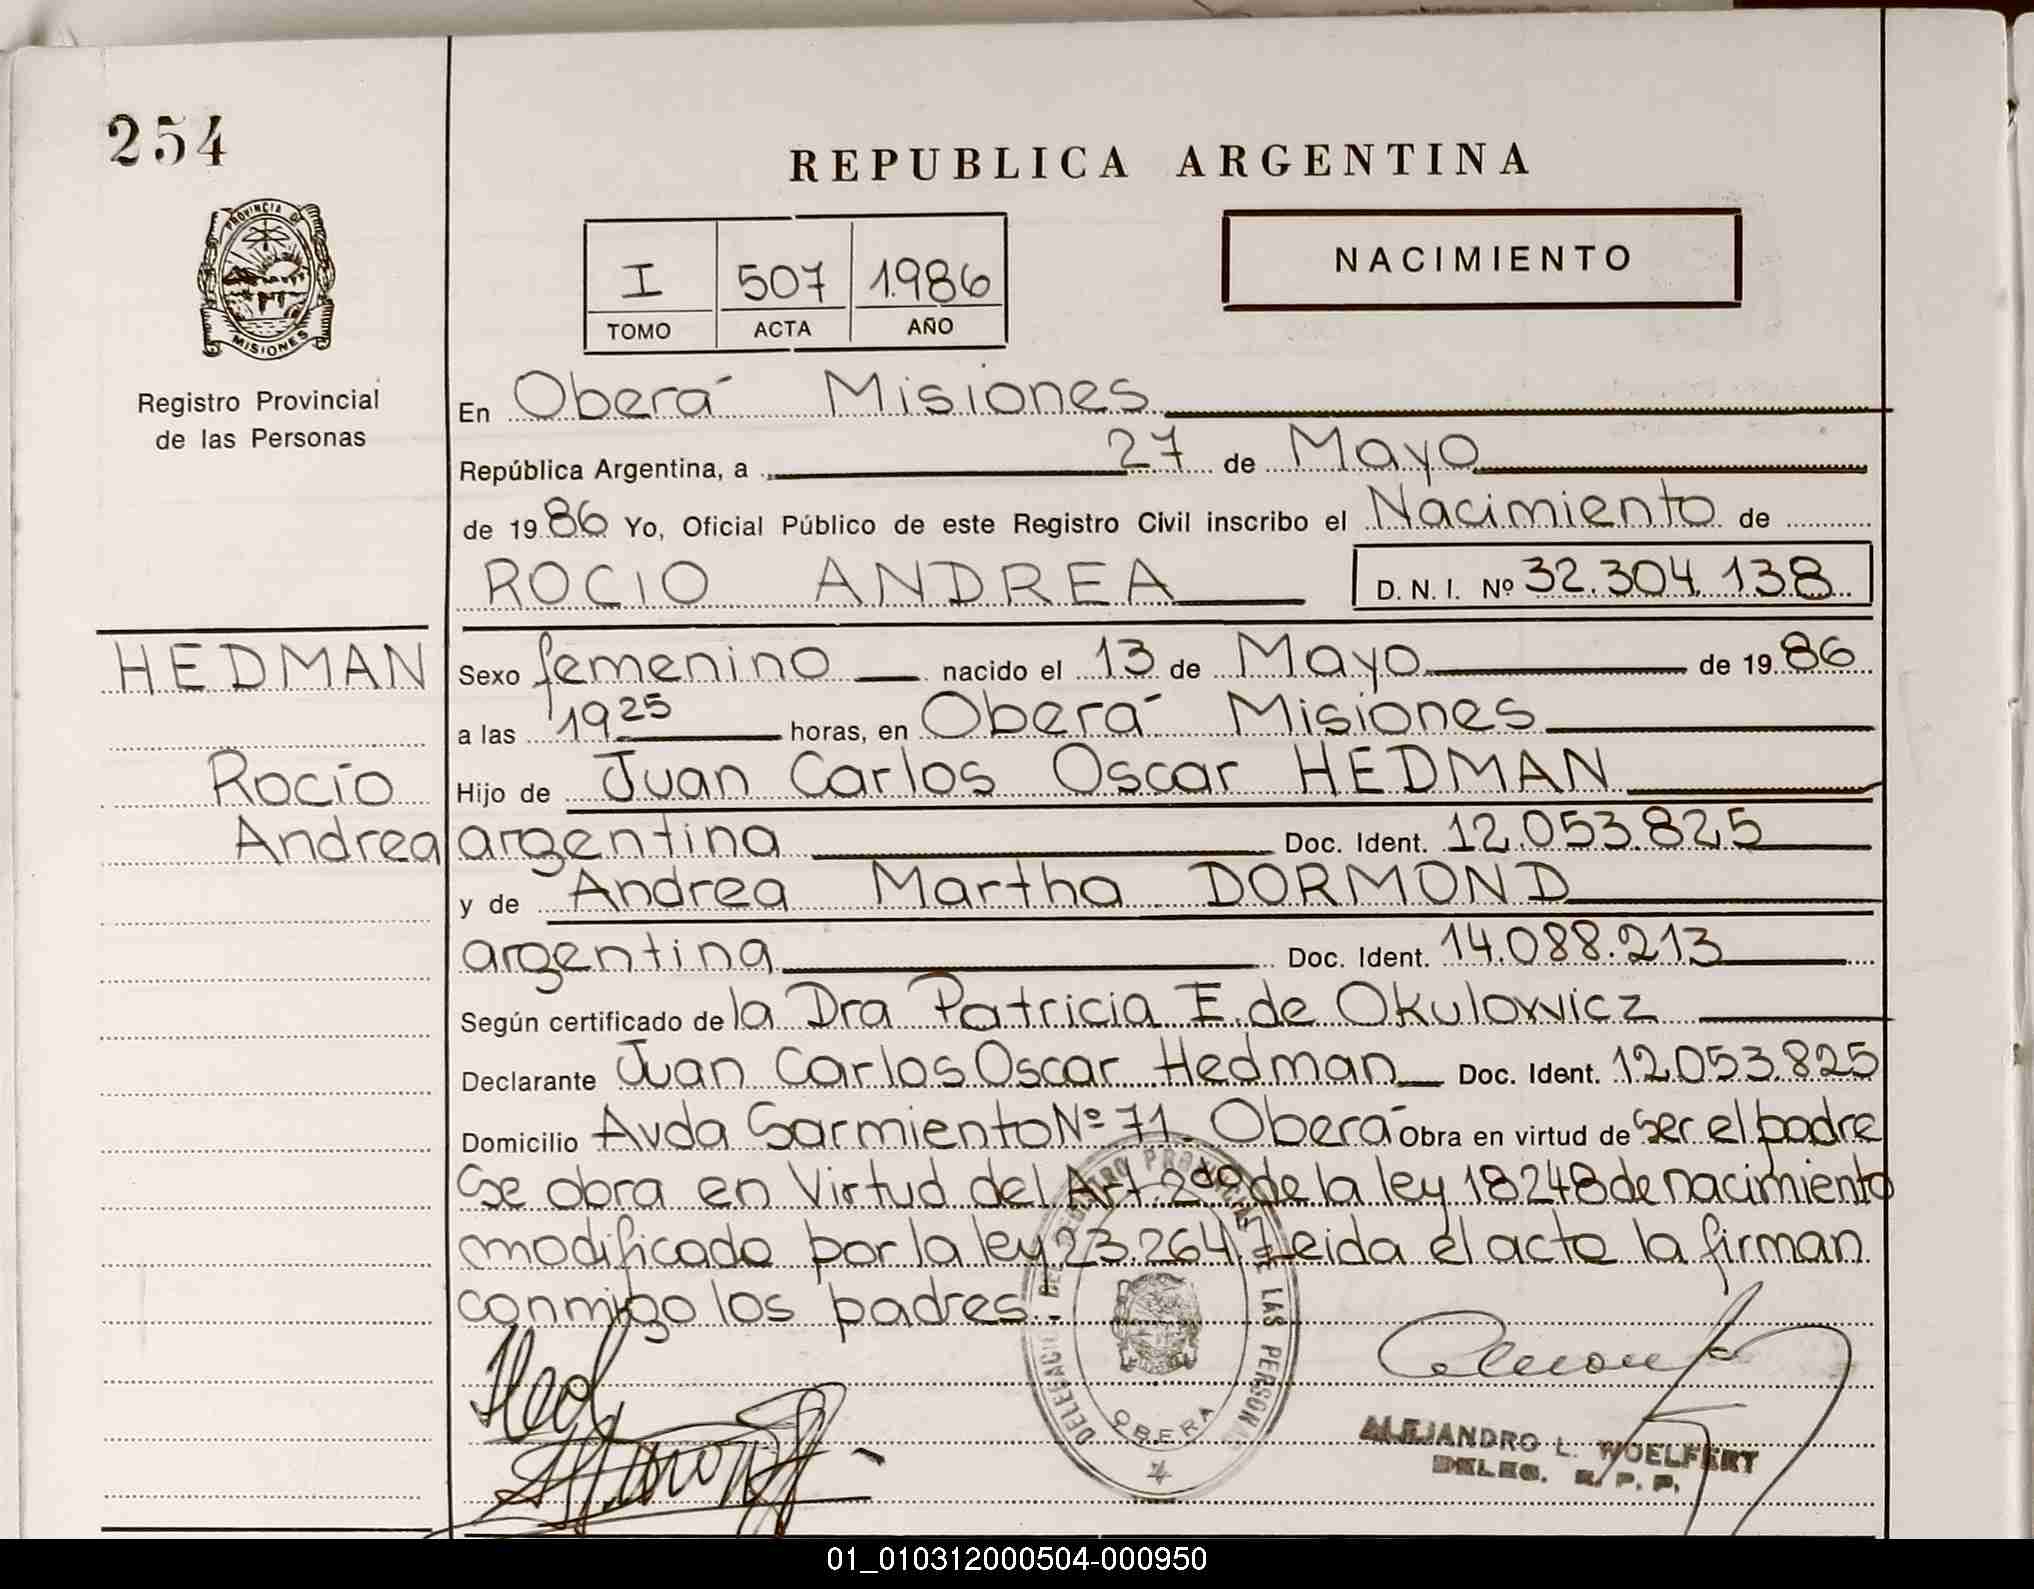 254
REPUBLICA ARGENTINA
PROVINCIA DE
MISIONES
I 507 1.986
TOMO ACTA AÑO
NACIMIENTO
Registro Provincial
de las Personas
En Oberá Misiones
República Argentina, a 27 de Mayo
de 19 86 Yo, Oficial Público de este Registro Civil inscribo el Nacimiento de
ROCIO ANDREA D. N. I. Nº 32.304.138
HEDMAN
Rocío
Andrea
Sexo femenino nacido el 13 de Mayo de 19 86
a las 19 25 horas, en Oberá Misiones
Hijo de Juan Carlos Oscar HEDMAN
argentina Doc. Ident. 12.053.825
y de Andrea Martha DORMOND
argentina Doc. Ident. 14.088.213
Según certificado de la Dra Patricia E. de Okulovvicz
Declarante Juan Carlos Oscar Hedman Doc. Ident. 12.053.825
Domicilio Avda Sarmiento Nº 71. Oberá Obra en virtud de ser el padre
Se obra en Virtud del Art. 2do de la ley 18248 de nacimiento
modificado por la ley 23.264. Leida el acta la firman
conmigo los padres.-
DELEGACION DEL REGISTRO PROVINCIAL DE LAS PERSONAS
OBERA
ALEJANDRO L. WOELFERT
DELEG. R. P. P.
01_010312000504-000950